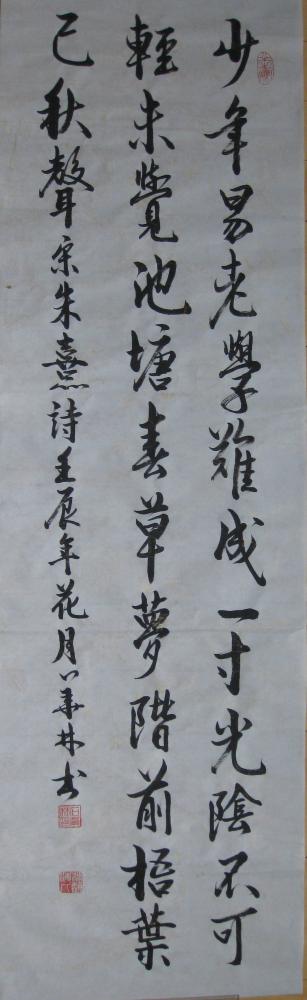 少年易老學難成一寸光陰不可
輕未覺池塘春草夢階前梧葉
已秋聲宋朱熹詩壬辰年花月華林書